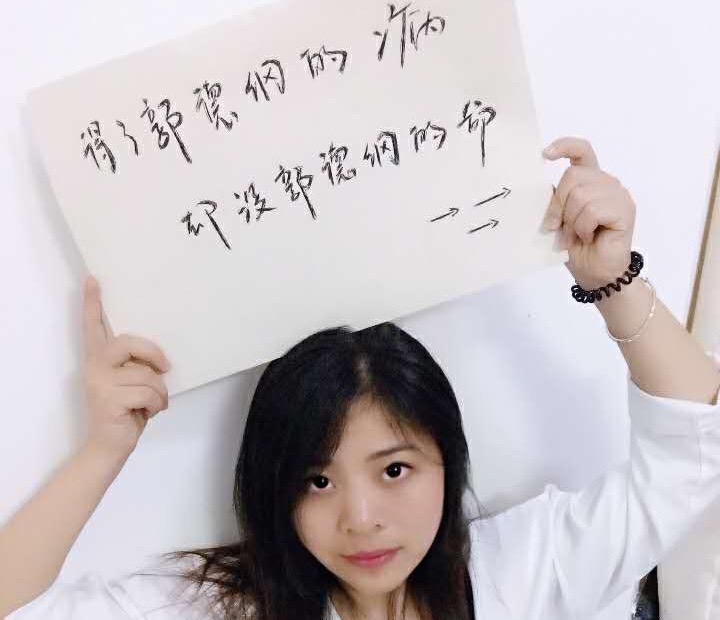 得了郭德纲的病
却没郭德纲的命
→ →
→